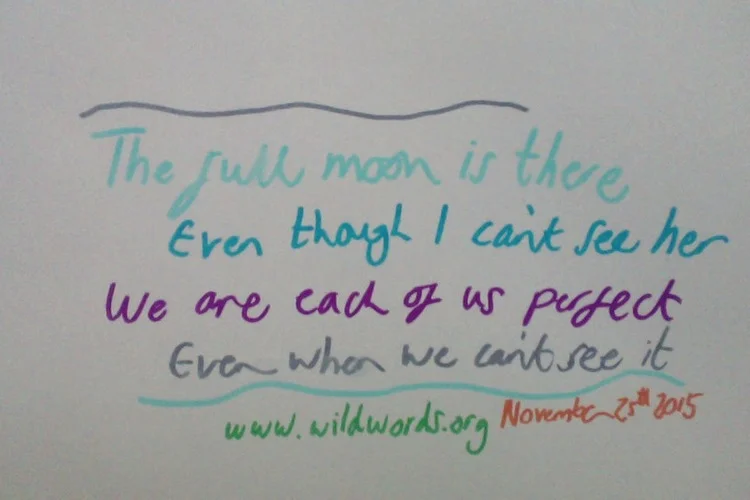 The full moon is there
Even though I can't see her
We are each of us perfect
Even when we can't see it
www.wildwords.org November 25th 2015